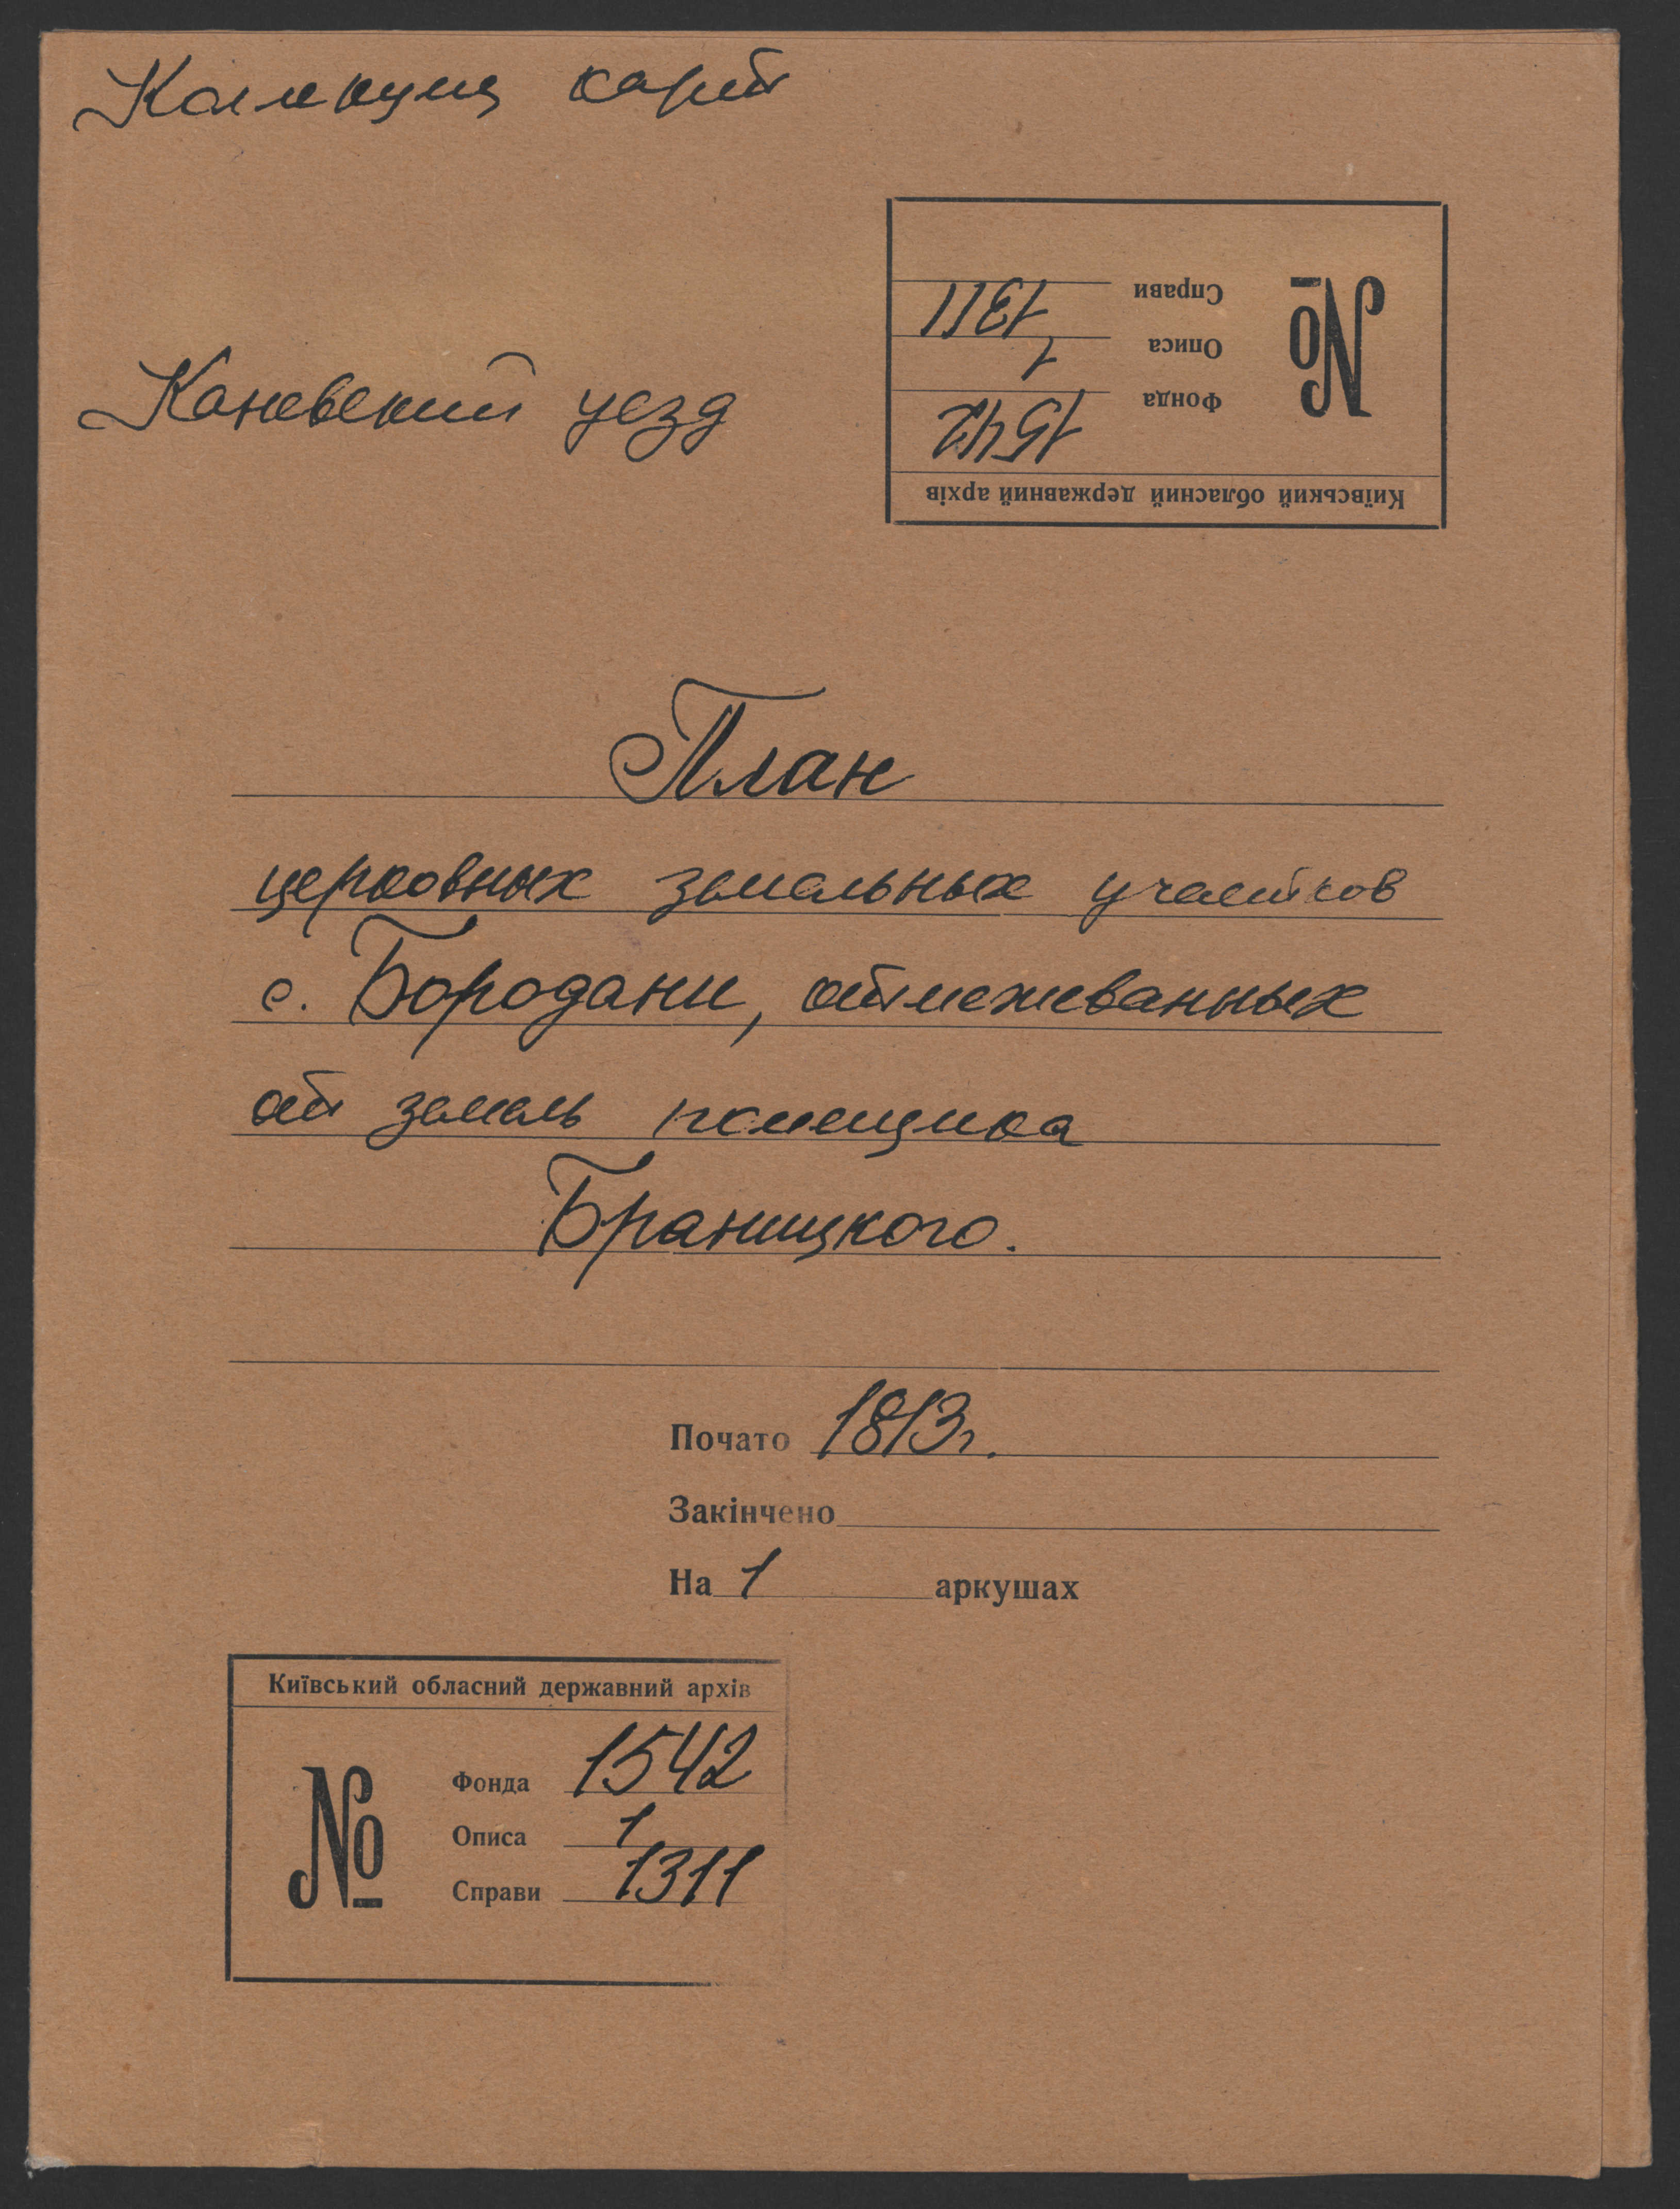 Коллекция карт
Справи 1311
Описа 1
Фонда 1542
№
Київський обласний державний архів
Каневский уезд
План
церковных земельных участков
с. Бородани, отмежеванных
от земель помещика
Браницкого.
Почато 1813г.
Закінчено
На 1 аркушах
Київський обласний державний архів
№
Фонда 1542
Описа 1
Справи 1311